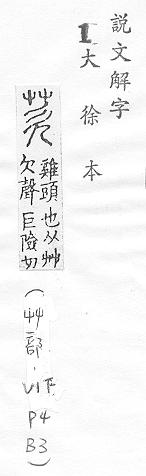 説文解字
1 大徐本
芡 雞頭也从艸
欠聲巨險切
(艸部,V1下
P4
B3)